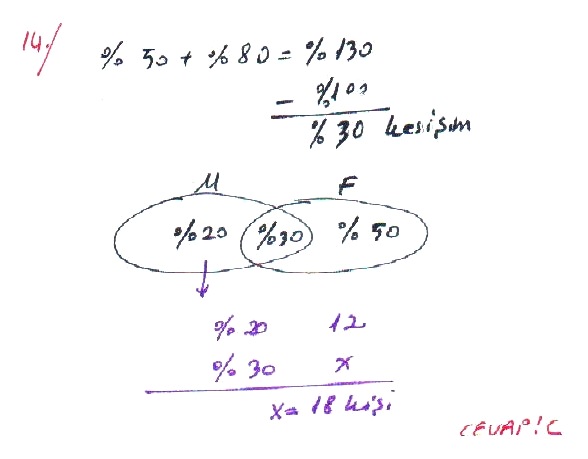 14./
% 50 + % 80 = % 130
- % 100
% 30 kesişim
M F
% 20 % 30 % 50
% 20 12
% 30 x
x = 18 kişi
CEVAP: C